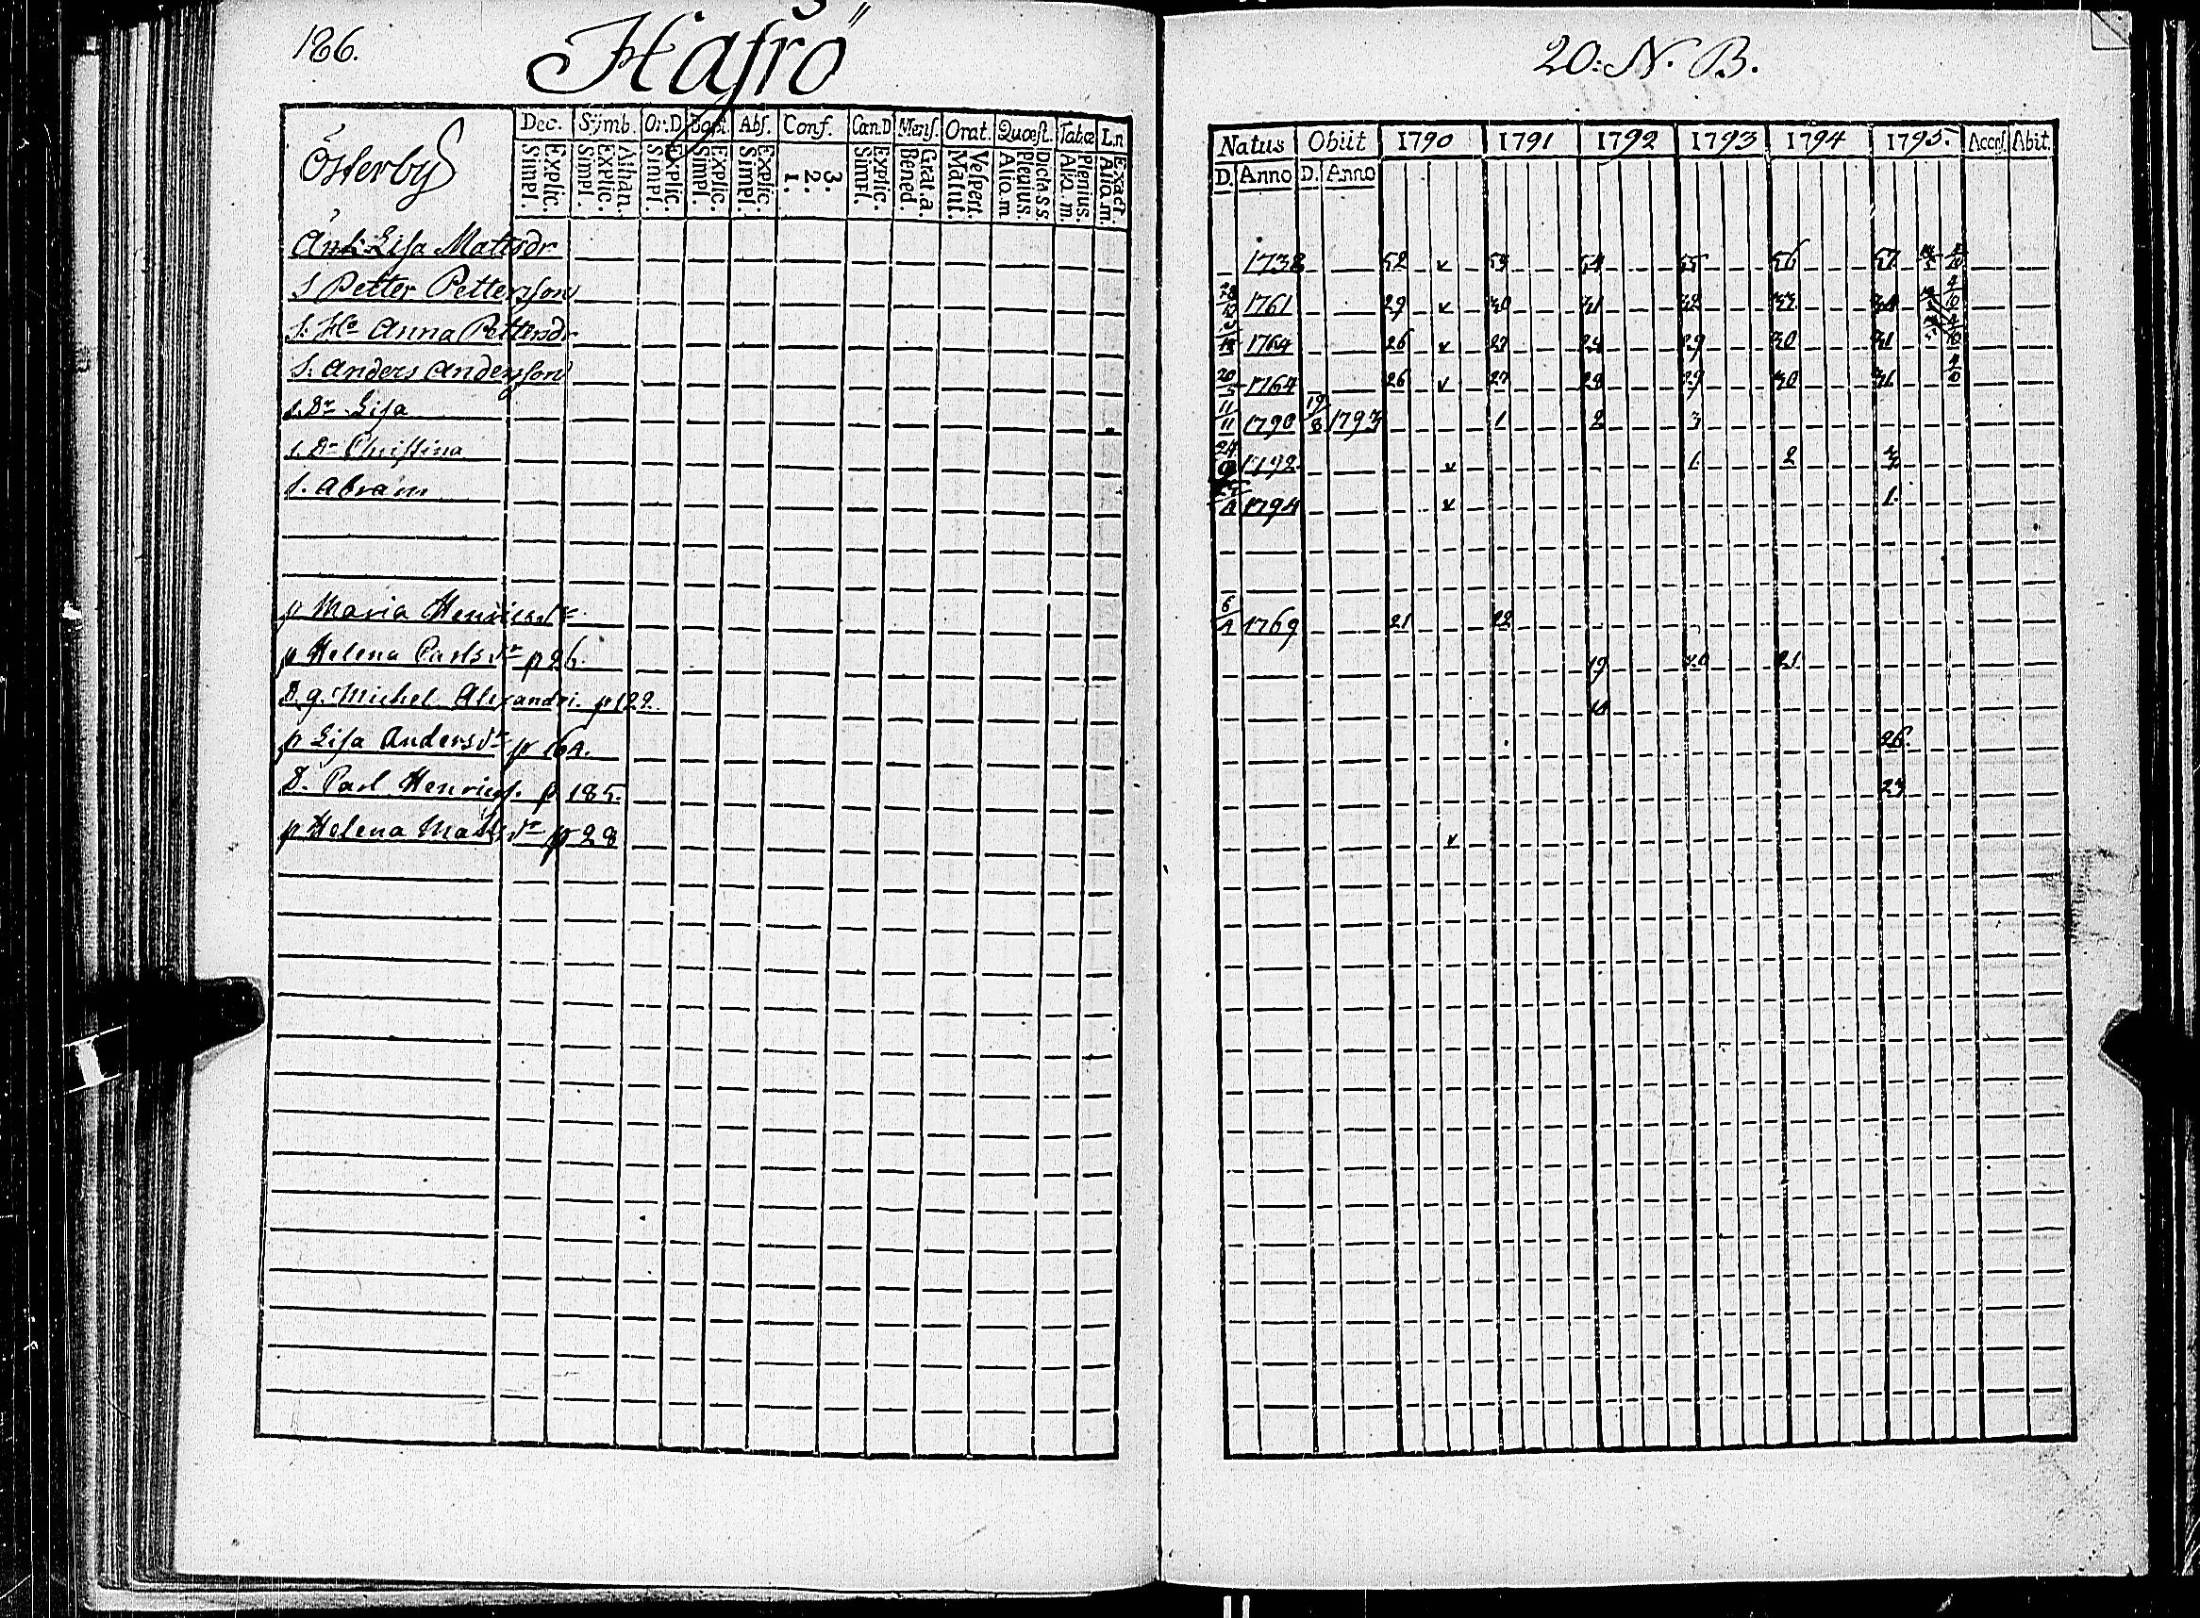 186.
Hafrö
20: N. B.
Österby
Dec. Symb. Or.D Bapt. Abs. Conf. Can.D Mens. Orat. Quæst. Tabæ L.n
Simpl. Explic. Simpl. Explic. Athan. Simpl. Explic. Simpl. Explic. Simpl. Explic. 1. 2. 3. Simpl. Explic. Bened. Grat.a. Matut. Vespert. Alio.m Plenius. Dicta.s.s. Alio.m. Plenius. Alio.m. Exact.
Natus Obiit 1790 1791 1792 1793 1794 1795. Access. Abit.
D. Anno D. Anno
Änk: Lisa Mattsdr 1738 52 x 53 54 55 56 57
S Petter Pettersson 1761 29 x 30 31 32 33
s. Hu Anna Pettersdr 1764 26 x 27 28 29 30 31
S. Anders Andersson 20 1764 26 x 27 28 29 30 31
s. Dr Lisa 11/11 1790 19/8 1793 1 2 3
s. Dr Christina 24 1792 x 1. 2 3
s. Abram 1794 x 1.
p Maria Henricsdr 6/4 1769 21 22
p Helena Carlsdr p 26. 19 20 21
D. g. Michel Alexandri. p 122.
p Lisa Andersdr p 164. 26.
D. Carl Henricss. p 185. 23
p Helena Matsdr p 28 x